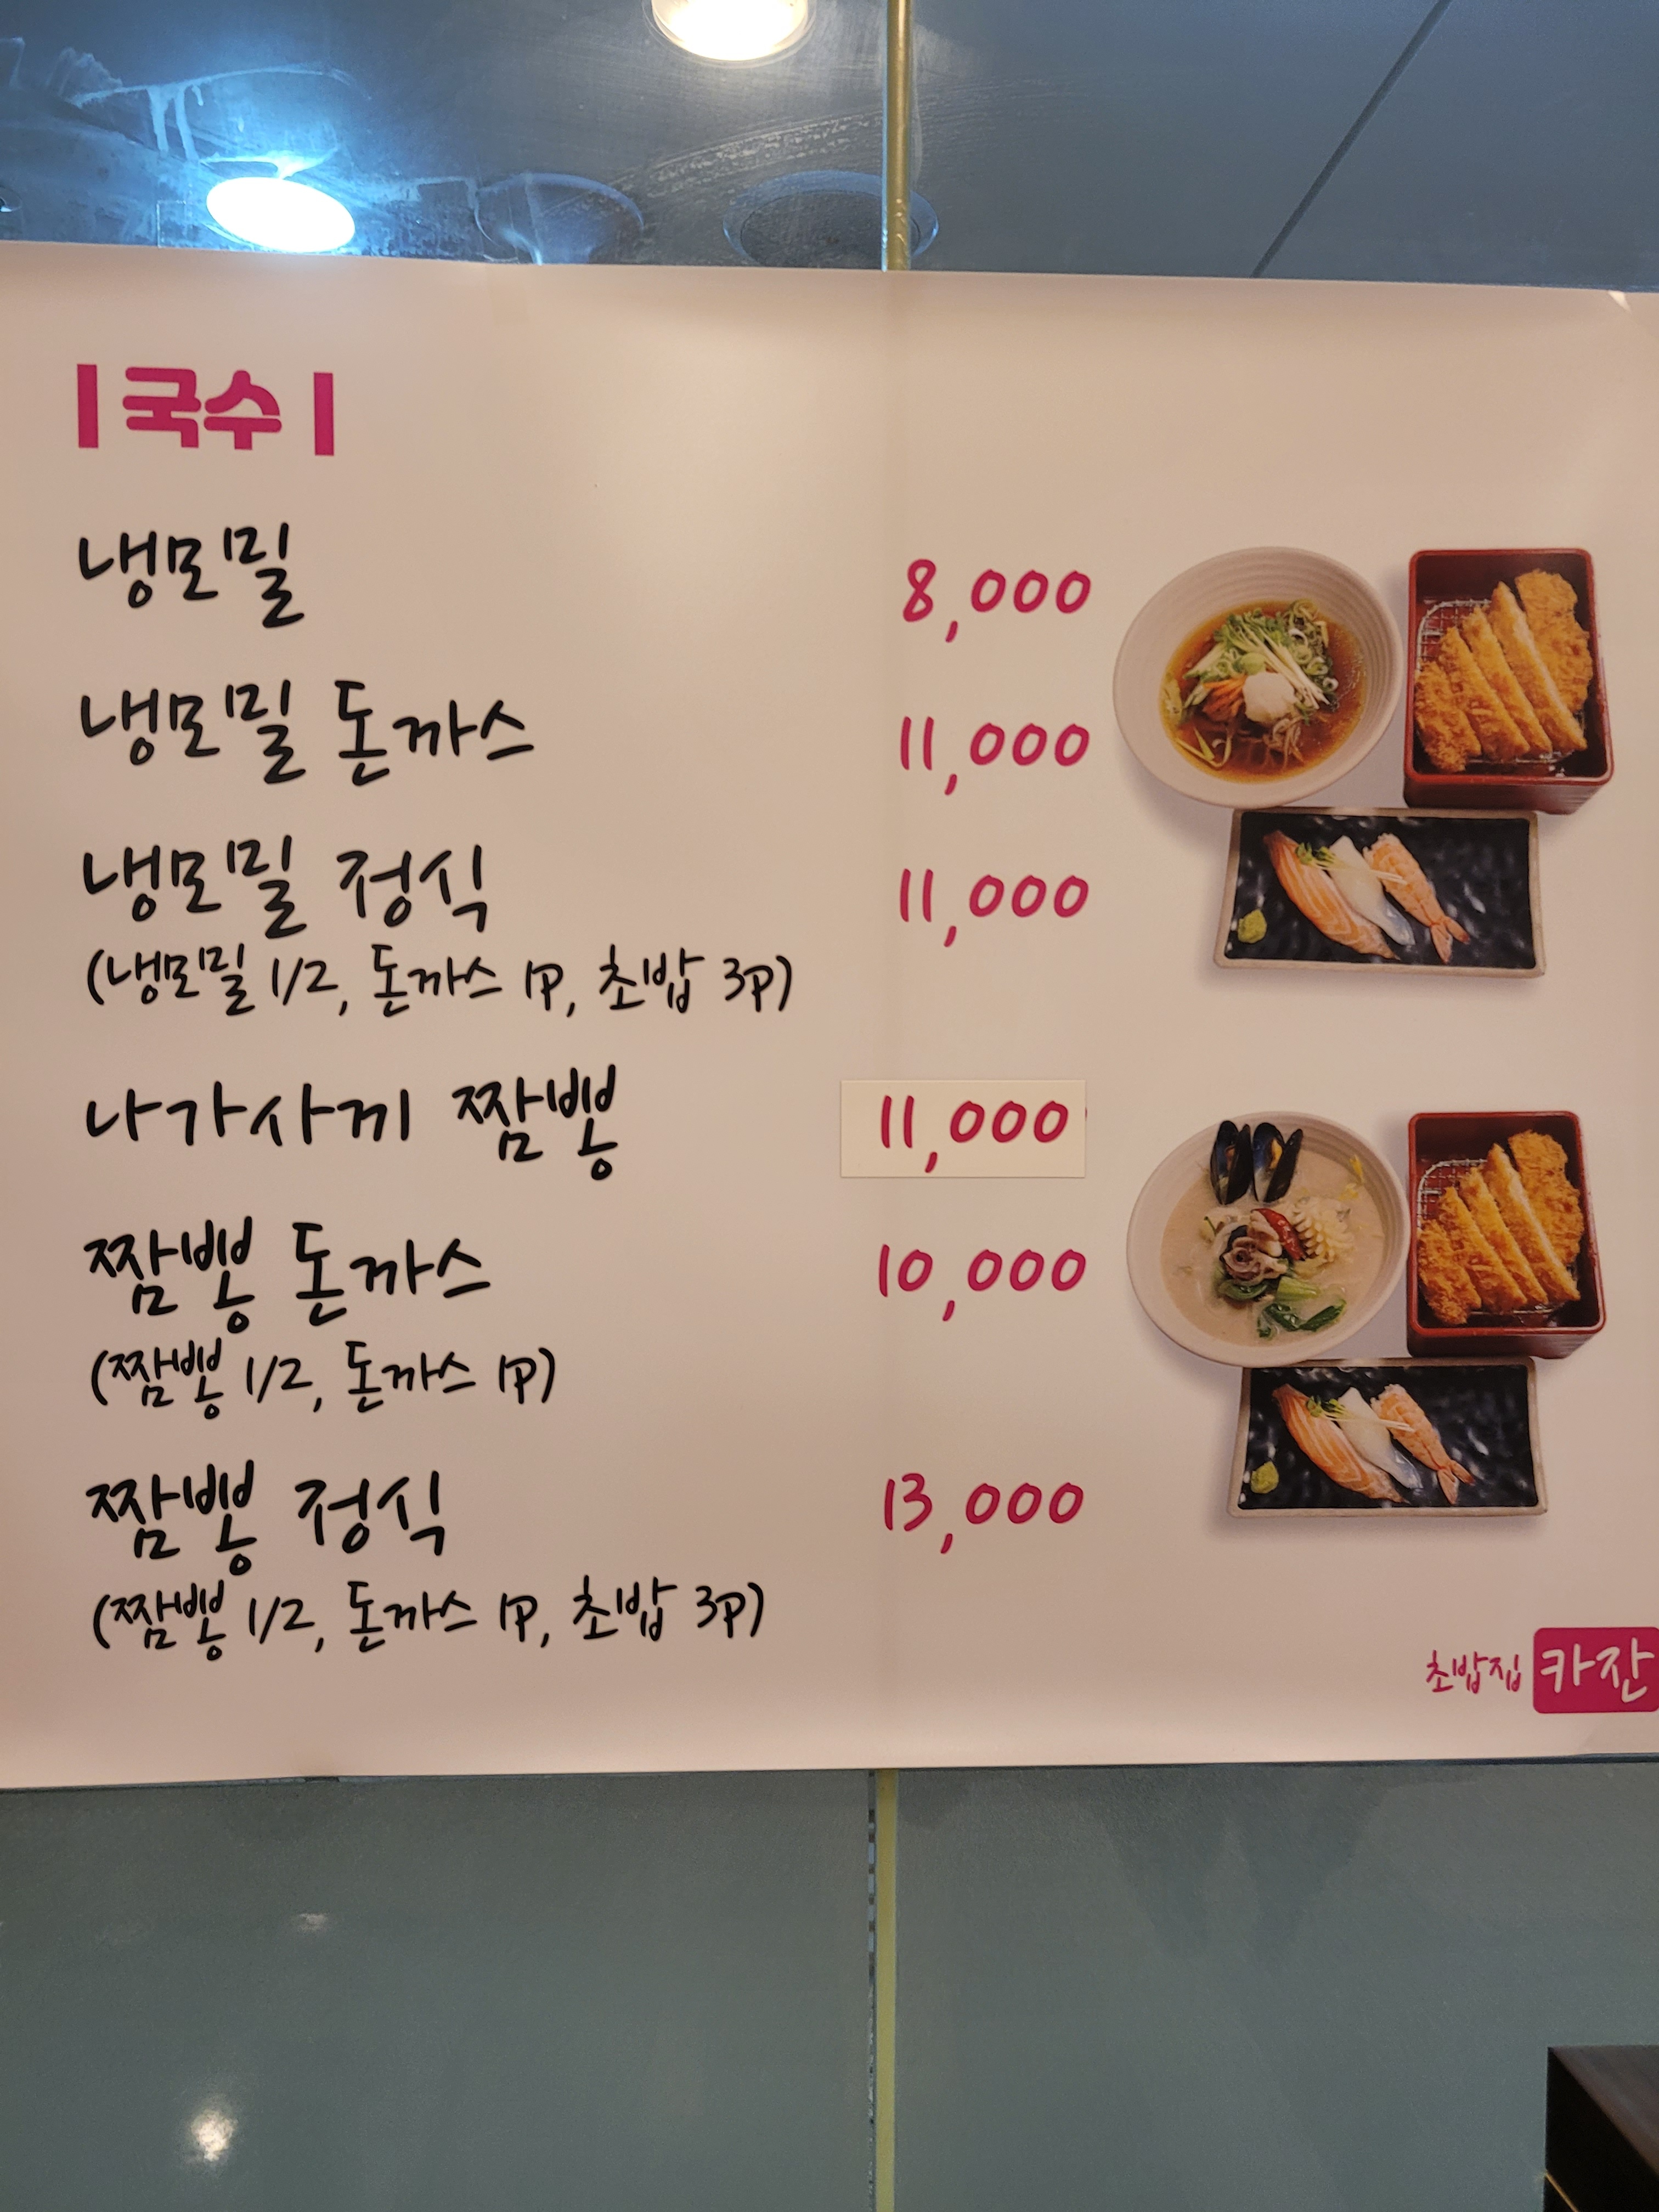 | 국수 |
냉모밀 8,000
냉모밀 돈까스 11,000
냉모밀 정식 11,000
(냉모밀 1/2, 돈까스 1P, 초밥 3P)
나가사끼 짬뽕 11,000
짬뽕 돈까스 10,000
(짬뽕 1/2, 돈까스 1P)
짬뽕 정식 13,000
(짬뽕 1/2, 돈까스 1P, 초밥 3P)
초밥집 카잔